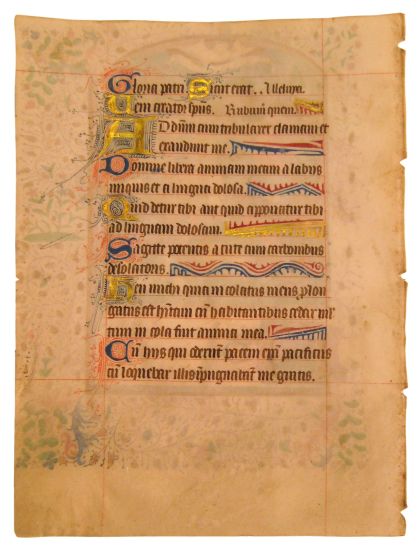 Gloria patri. Sicut erat. Alleluya.
Veni creator sp̄us. Rubum quem.
AD dn̄m cum tribularer clamaui et
exaudiuit me.
Domine libera animam meam a labijs
iniquis et a lingua dolosa.
Quid detur tibi aut quid apponatur tibi
ad linguam dolosam.
Sagitte potentis acute cum carbonibus
desolatorijs.
Heu michi quia incolatus meus prolon
gatus est h̄itaui cū habitantibus cedar ml̄
tum incola fuit anima mea.
Cū hijs qui oderūt pacem erā pacificus
cū loquebar illis īpugnabāt me gratis.